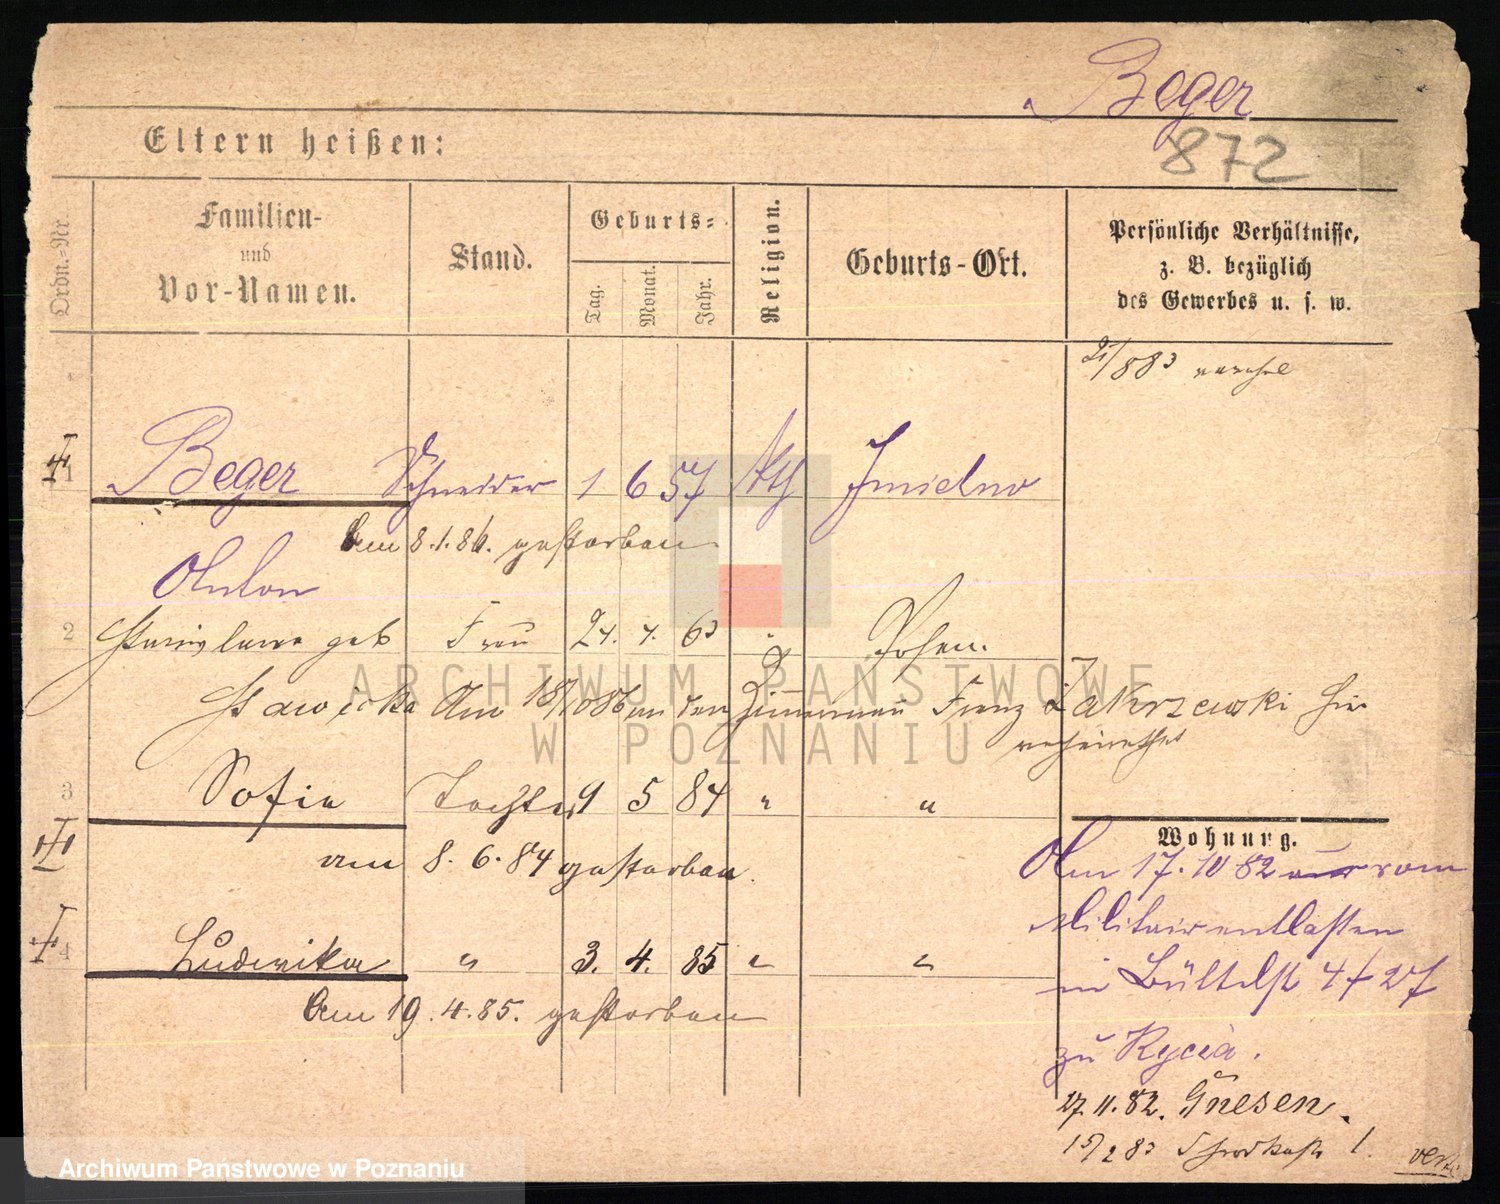 Beger
872
Eltern heißen:
Ordn.-Nr.
Familien-
und
Vor-Namen.
Stand.
Geburts-
Tag.
Monat.
Jahr.
Religion.
Geburts-Ort.
Persönliche Verhältnisse,
z. B. bezüglich
des Gewerbes u. s. w.
1 Beger Schneider 1 6 57 kth Imielno
Am 8.1.86. gestorben
Anton
2 Stanislawa geb Frau 24. 4. 63 " Posen.
Stawicka Am 18/10 86 an den Zimmermann Franz Zakrzewski hier
verheirathet
3 Sofia Tochter 9 5 84 " "
am 8. 6. 84 gestorben.
4 Ludwika " 3. 4. 85 " "
Am 19. 4. 85. gestorben
Wohnung.
Am 17. 10 82 vom
Militair entlassen
in 4
zu
27. 11. 82. Gnesen.
15/2 83 1.
ARCHIWUM PAŃSTWOWE
W POZNANIU
Archiwum Państwowe w Poznaniu